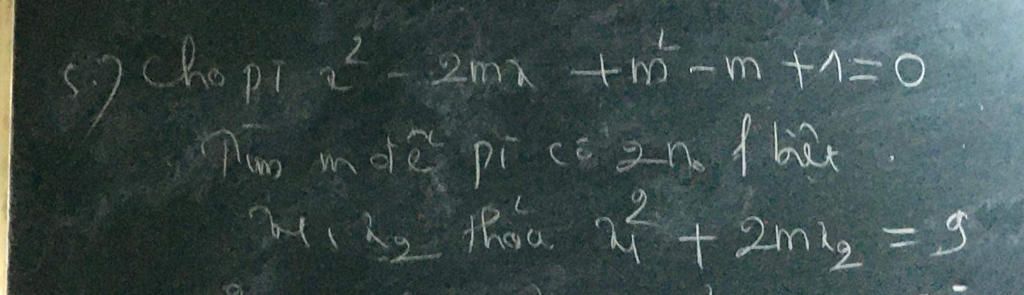 5.) Cho pt x² - 2mx + m² - m + 1 = 0
Tìm m để pt có 2 n₀ f biệt
x₁, x₂ thỏa x₁² + 2mx₂ = 9